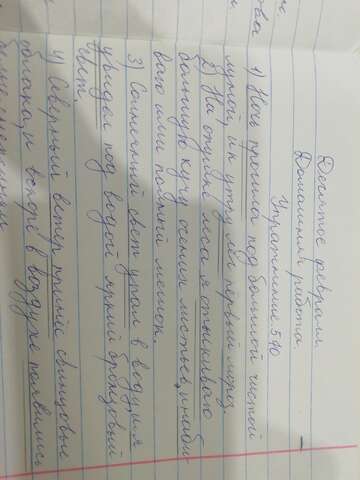 Десятое февраля.
Домашняя работа.
Упражнение 590
1) Ночь прошла под большой чистой
луной и к утру лёг первый мороз.
2) На опушке леса я отыскиваю
большую кучу осених листьев, и наби-
ваю ими полный мешок.
3) Солнечный свет упал в воду, и я
увидел под водой яркий бронзовый
свет.
4) Северный ветер принёс свинцовые
облака, и вскоре в воздухе появились